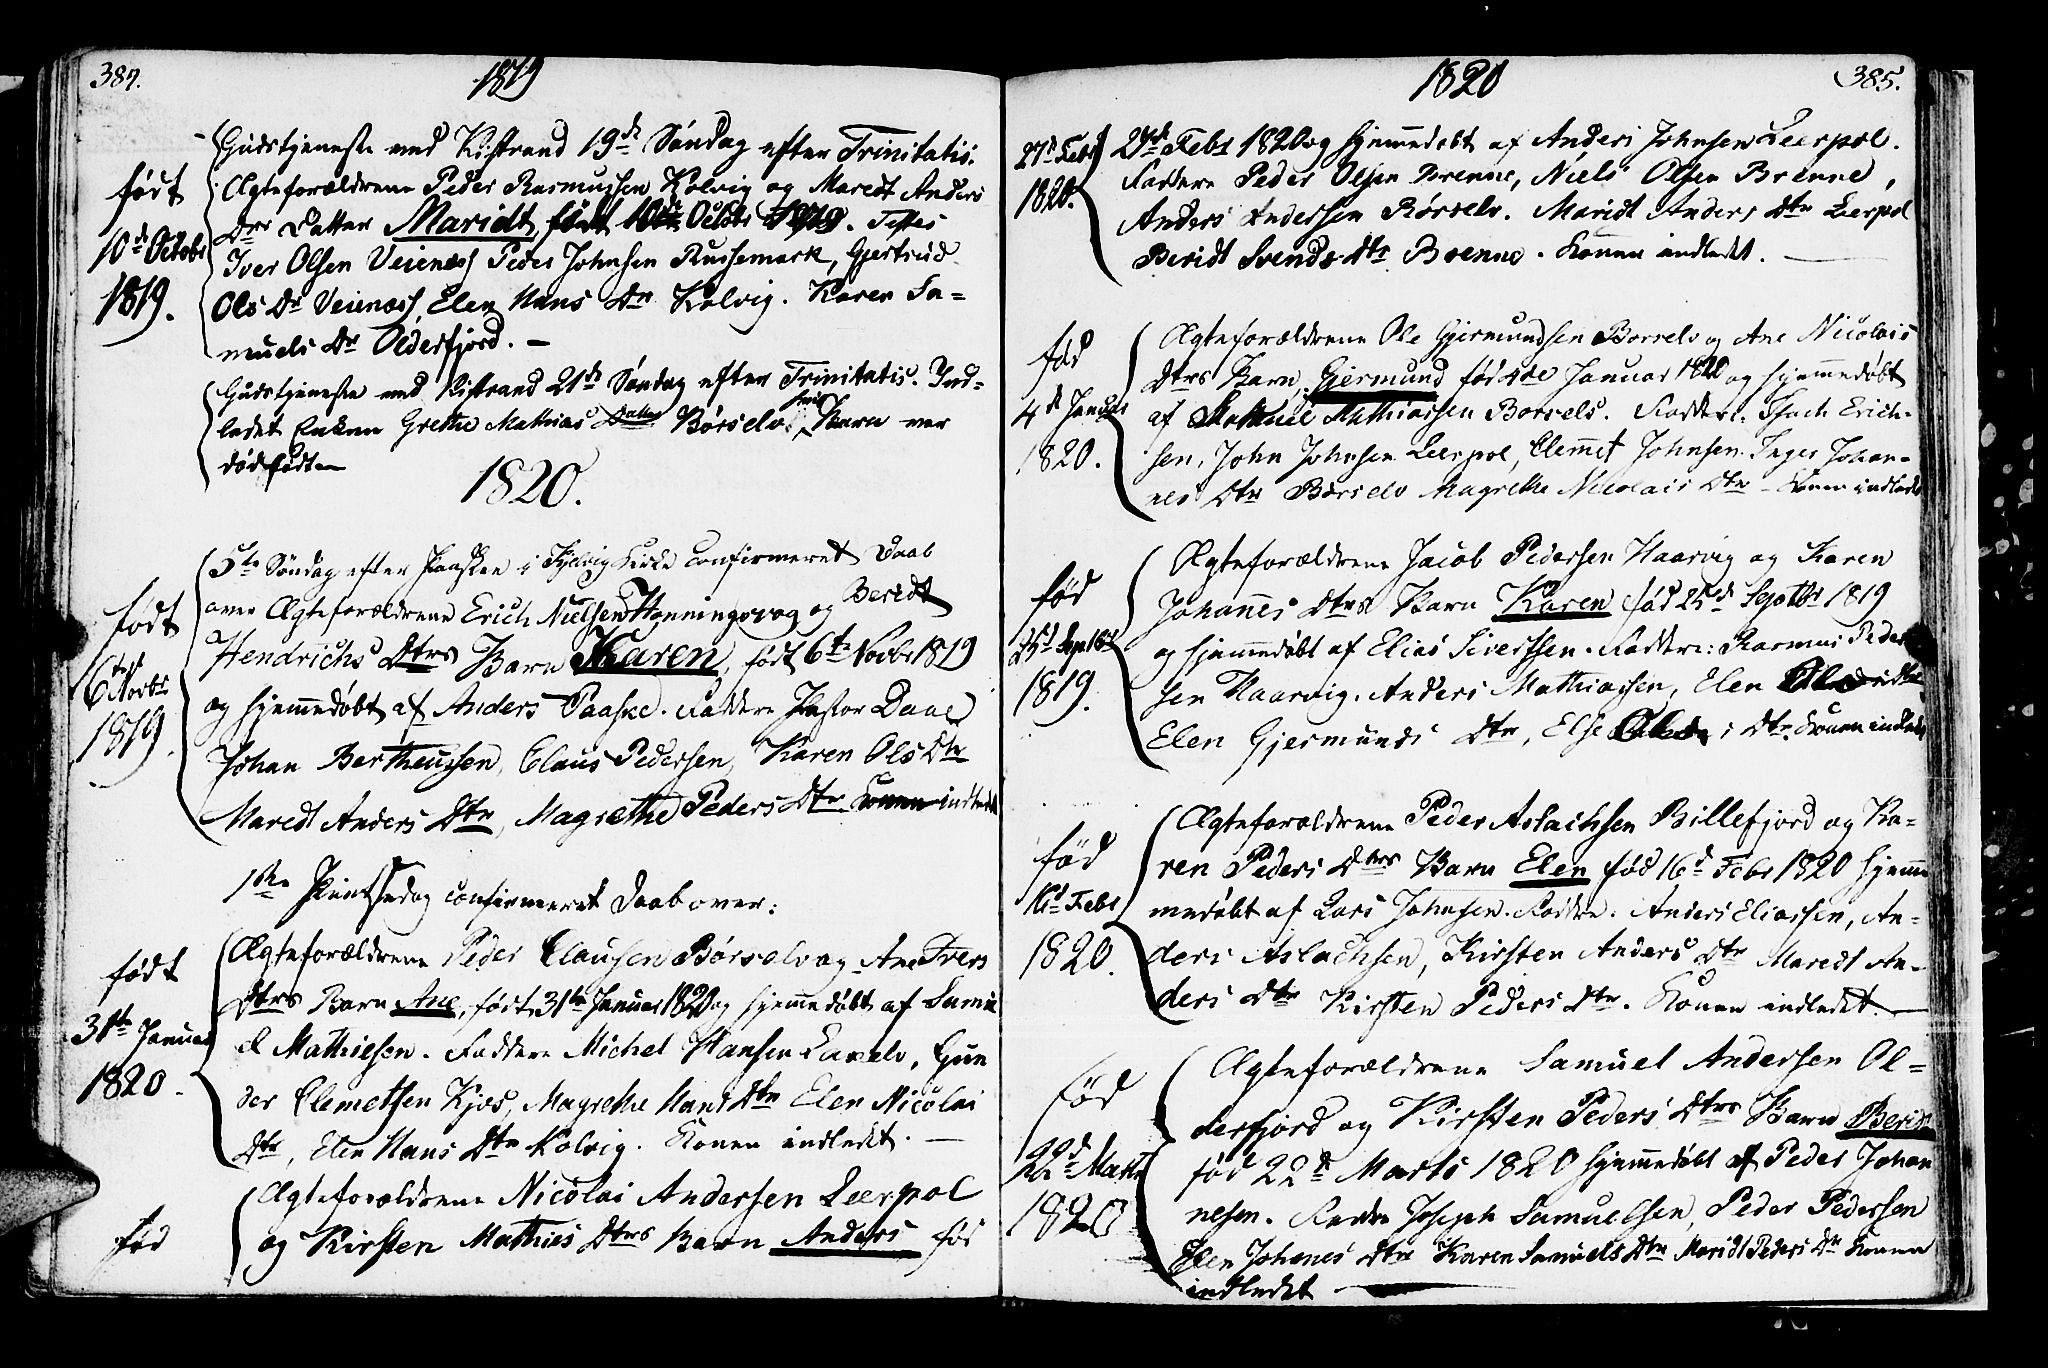 384.
1819
født
10de Octobr
1819.
Gudstjeneste ved Kistrand 19de Søndag efter Trinitatis.
Ægteforældrene Peder Rasmussen Kolvig og Maredt Anders
Drs Datter Maridt, født 10de Octobr 1819. Testes
Iver Olsen Veienæss Peder Johnsen Russemark, Gjertrud
Ols Dr Veienæss, Elen Hans Dtr Kolvig. Karen Sa=
muels Dr Olderfjord. —
Gudstjeneste ved Kistrand 21de Søndag efter Trinitatis. Ind=
ledet Enken Grethe Mathias Datter Børselv, hvis Barn var
dødfødt
1820.
født
6te Novbr
1819.
5te Søndag efter Paasken i Kjelvig Kirke confirmeret Daab
over Ægteforældrene Erich Nielsen Honningsvog og Beridt
Hendrichs Dtrs Barn Karen, født 6te Novbr 1819
og hjemmedøbt af Anders Paaske. Faddere Pastor Daae
Johan Bertheussen, Claus Pedersen, Karen Ols Dtr
Maredt Anders Dtr, Magrethe Peders Dtr. Konen indledet
1ste Pintsedag confirmeret Daab over:
født
31te Januar
1820.
Ægteforældrene Peder Clausen Børselv og Ane Ivers
Dtrs Barn Ane, født 31te Januar 1820 og hjemmedøbt af Samu
el Mathiesen. Faddere Michel Hansen Laxelv, Gun
der Clemetsen Kjøs, Magrethe Hans Dtr Elen Nicolai
Dtr, Elen Hans Dtr Kolvig. Konen indledet. —
fød
Ægteforældrene Nicolai Andersen Leerpol
og Kirsten Mathies Dtrs Barn Anders fød
1820
385.
27de Febr
1820.
27de Febr 1820 og hjemmedøbt af Anders Johnsen Leerpol.
Faddere Peder Olsen Brenne, Niels Olsen Brenne,
Anders Andersen Børselv. Maridt Anders Dtr Leerpol
Beridt Svends Dtr Brenne. Konen indledet. —
fød
4de Januar
1820.
Ægteforældrene Ole Gjermundsen Borselv og Ane Nicolais
Dtrs Barn, Gjermund fød 4de Januar 1820 og hjemmedøbt
af Samuel Mathiassen Borselv. Faddere: Isach Erich-
sen, John Johnsen Leerpol, Clemmet Johnsen. Inger Johan-
nes Dtr Børselv Magrethe Nicolais Dtr – Konen indledet
fød
25d Septbr
1819.
Ægteforældrene Jacob Pedersen Haarvig og Karen
Johannes Dtrs Barn Karen fød 25d Septbr 1819
og hjemmedøbt af Elias Siverssen. Faddere: Rasmus Peder
sen Haarvig. Anders Mathiassen, Elen
Elen Gjermunds Dtr, Else Dtr. Konen indledet
fød
16d Febr
1820.
Ægteforældrene Peder Aslachsen Billefjord og Ka=
ren Peders Dtrs Barn Elen fød 16d Febr 1820 hjem
medøbt af Lars Johnsen. Faddre. Anders Eliassen, An-
ders Aslachsen, Kirsten Anders Dtr Maredt An-
ders Dtr Kirsten Peders Dtr. Konen indledet. —
fød
22d Marts
1820
Ægteforældrene Samuel Andersen Ol=
derfjord og Kirsten Peders Dtrs Barn Beridt
fød 22d Marts 1820 hjemmedøbt af Peder Johan
nesen. Faddre Joseph Samuelsen, Peder Pedersen
Elen Johanes Dtr Karen Samuels Dtr Maridt Peders Dr Konen
indledet —